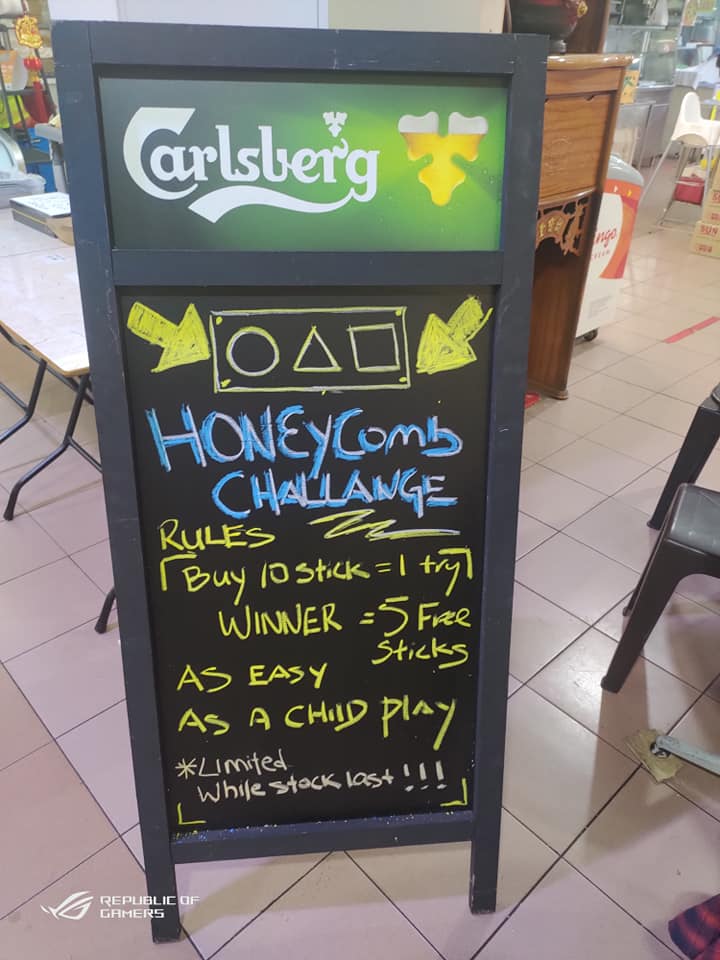 Carlsberg
HONEYComb
CHALLANGE
RULES
Buy 10 stick = 1 try
WINNER = 5 Free
sticks
AS EASY
AS A CHILD PlAY
*Limited
While stock last !!!
REPUBLIC OF
GAMERS